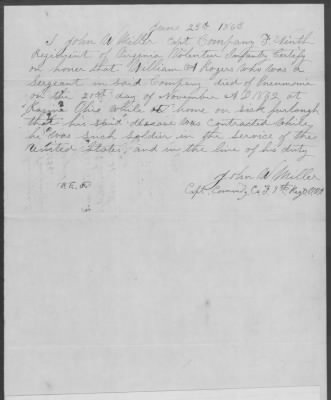 June 25th 1863
I John W Miller Capt Company F Ninth
Regiment of Virginia Volenteer Infantry Certify
on honer that William A Rogers who was a
Sergeant in said Company died of Pneumone
on the 21st day of November A D 1862 at
Racine Ohio While at home on sick furlough
that his said disease was Contracted While
he was such soldier in the service of the
United States, and in the line of his duty
John W Miller
Capt Commdg Co F 9th Regt